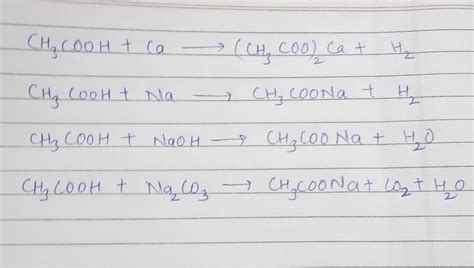 CH₃COOH + Ca ⟶ (CH₃COO)₂Ca + H₂
CH₃COOH + Na ⟶ CH₃COONa + H₂
CH₃COOH + NaOH ⟶ CH₃COONa + H₂O
CH₃COOH + Na₂CO₃ ⟶ CH₃COONa + CO₂ + H₂O